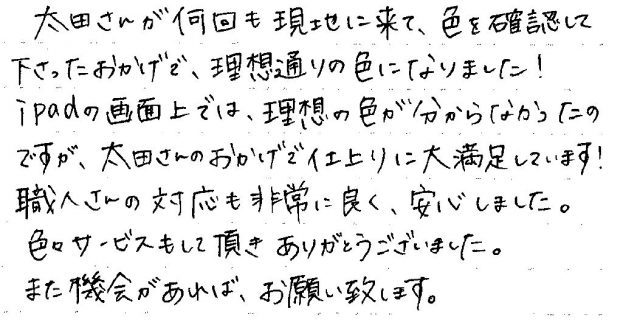 太田さんが何回も現地に来て、色を確認して
下さったおかげで、理想通りの色になりました！
ipadの画面上では、理想の色が分からなかったの
ですが、太田さんのおかげで仕上りに大満足しています！
職人さんの対応も非常に良く、安心しました。
色々サービスもして頂きありがとうございました。
また機会があれば、お願い致します。